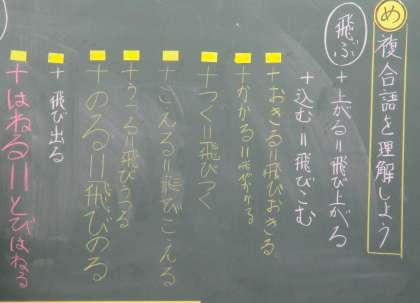 め 複合語を理解しよう
飛ぶ
+上がる=飛び上がる
+込む=飛びこむ
+おきる=飛びおきる
+かかる=飛びかかる
+つく=飛びつく
+こえる=飛びこえる
+うつる=飛びうつる
+のる=飛びのる
+飛び出る
+はねる=とびはねる